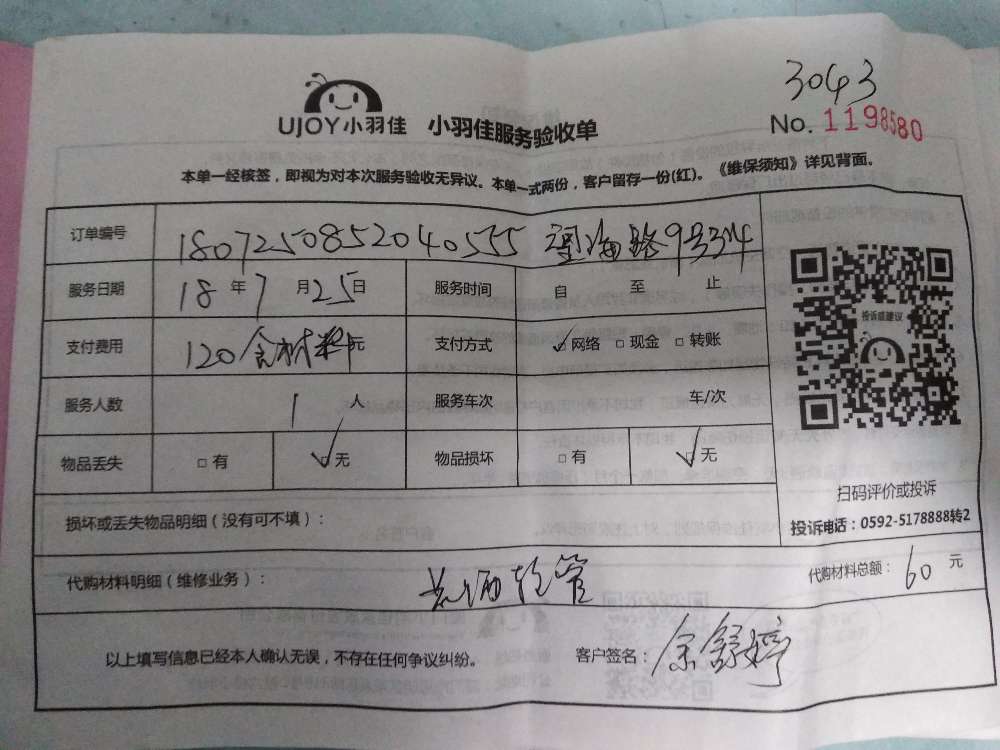 3043
UJOY小羽佳 小羽佳服务验收单 No. 1198580
本单一经核签，即视为对本次服务验收无异议。本单一式两份，客户留存一份(红)。《维保须知》详见背面。
订单编号 180725085204055 望海路9号314
服务日期 18年7月25日 服务时间 自 至 止
投诉或建议
支付费用 120含材料元 支付方式 ☑网络 □现金 □转账
服务人数 1人 服务车次 车/次
物品丢失 □有 ☑无 物品损坏 □有 ☑无
扫码评价或投诉
损坏或丢失物品明细（没有可不填）：
投诉电话：0592-5178888转2
代购材料明细（维修业务）： 软管 代购材料总额：60元
以上填写信息已经本人确认无误，不存在任何争议纠纷。 客户签名：余舒婷